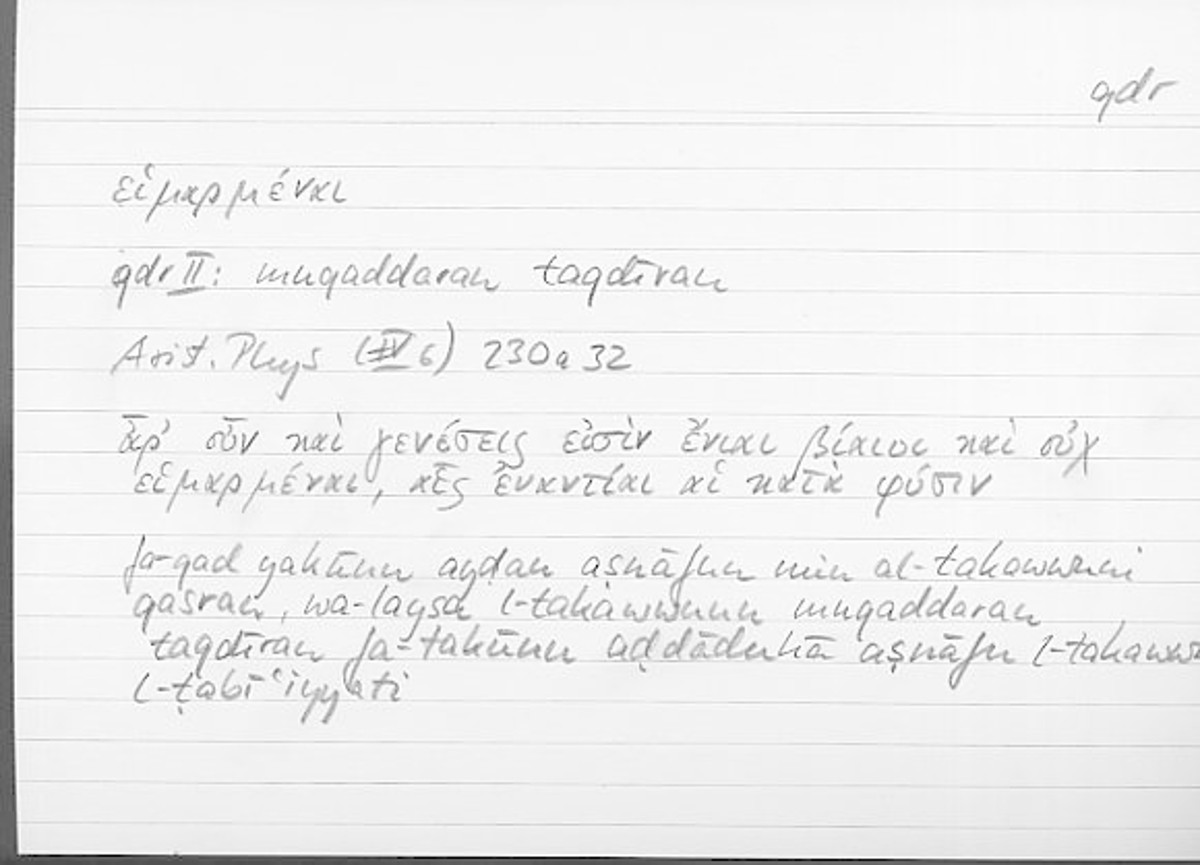 qdr
εἱμαρμέναι
qdr II: muqaddaran taqdīran
Arist. Phys (IV 6) 230a 32
ἆρ' οὖν καὶ γενέσεις εἰσὶν ἔνιαι βίαιοι καὶ οὐχ
εἱμαρμέναι, αἷς ἐναντίαι αἱ κατὰ φύσιν
fa-qad yakūnu ayḍan aṣnāfun min al-takawwuni
qasran, wa-laysa l-takawwunu muqaddaran
taqdīran fa-takūnu aḍdāduhā aṣnāfu l-takawwu
l-ṭabīʿiyyati